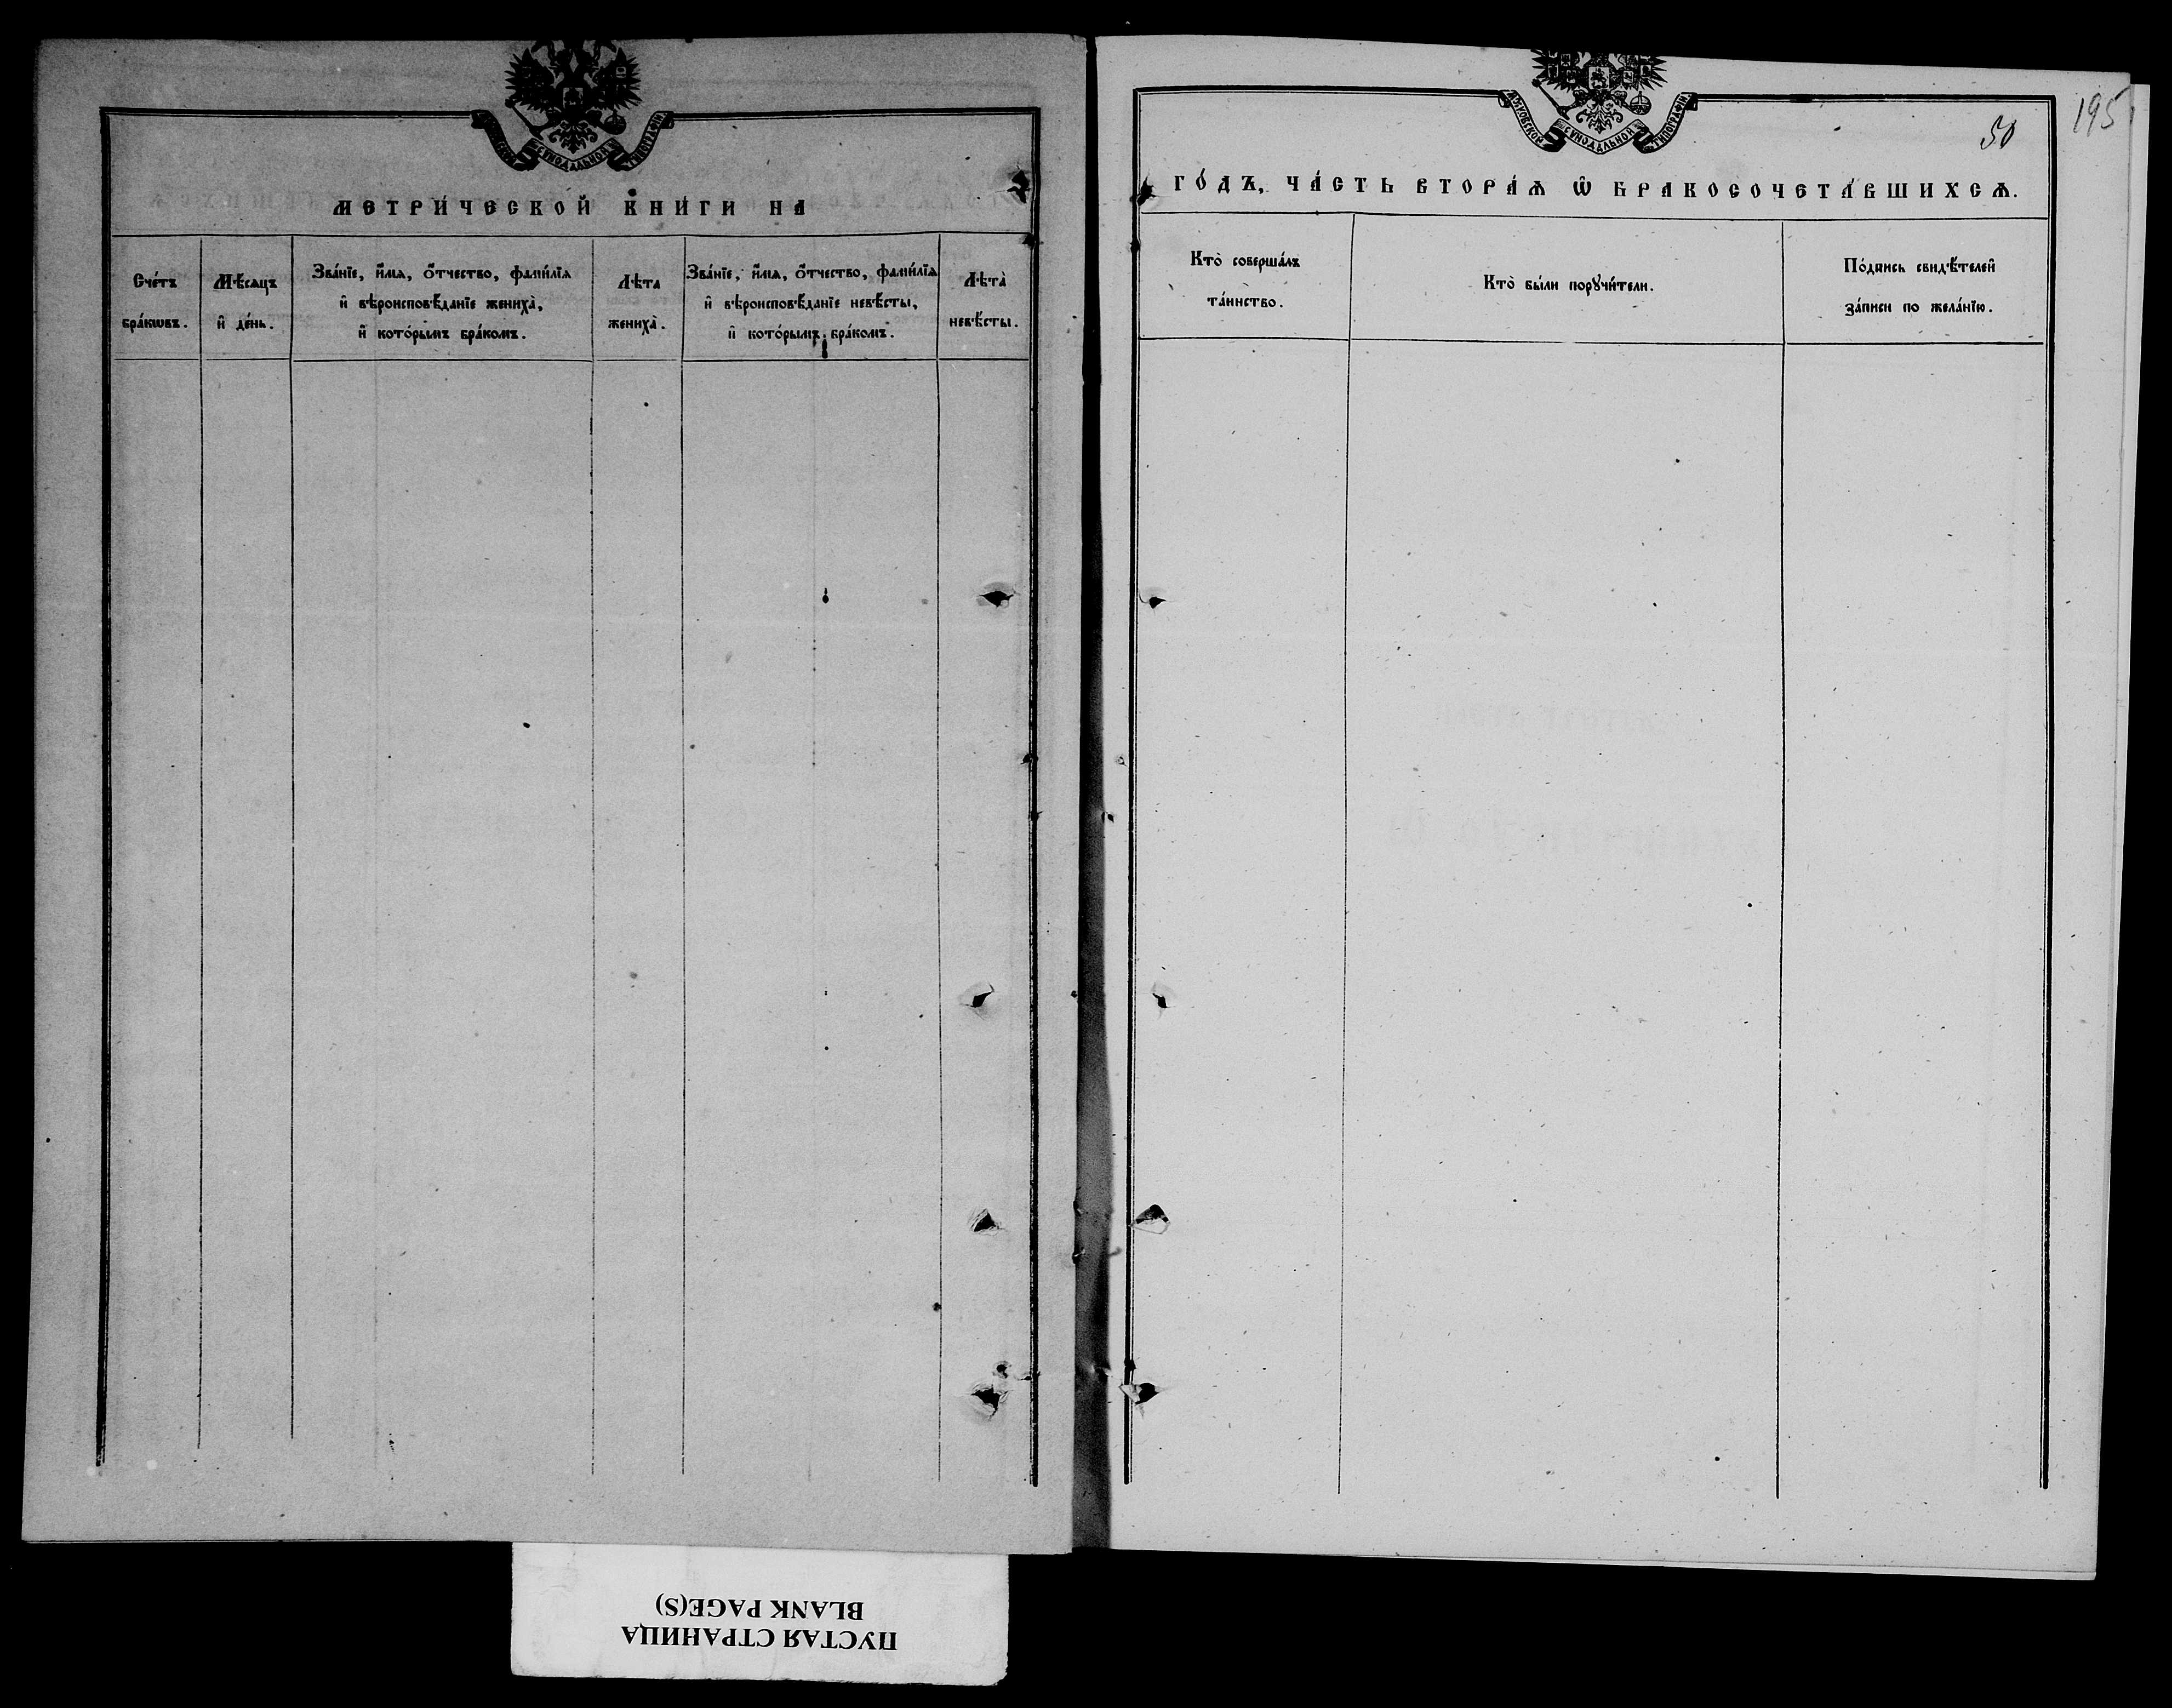 МЕТРИ́ЧЕСКОЙ КНИ́ГИ НА
Сче́тъ
бра́кѡвъ.
Мѣ́сѧцъ
и҆ де́нь.
Зва́нїе, и҆́мѧ, ѻ҆́тчество, фами́лїѧ
и҆ вѣроисповѣ́данїе женихà,
и҆ кото́рымъ бра́комъ.
Лѣ́та
женихà.
Зва́нїе, и҆́мѧ, ѻ҆́тчество, фами́лїѧ
и҆ вѣроисповѣ́данїе невѣ́сты,
и҆ кото́рымъ бра́комъ.
Лѣ́та
невѣ́сты.
195
50
МОСКОВСКОЙ СѴНОДАЛЬНОЙ ТИПОГРАФІИ
ГО́ДЪ, ЧА́СТЬ ВТОРА́Ѧ Ѡ҆ БРАКОСОЧЕТА́ВШИХСѦ.
Ктò соверша́лъ
та́инство.
Ктò бы́ли порꙋчи́тели.
По́дпись свидѣ́телей
за́писи по жела́нїю.
ПУСТАЯ СТРАНИЦА
BLANK PAGE(S)